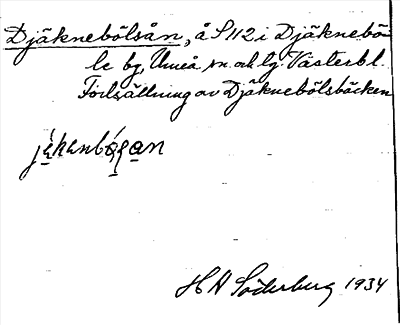 Djäknebölsån, å S 112 i Djäknebö-
le by, Umeå sn. ok lg. Västerbl.
Fortsättning av Djäknebölsbäcken
H A Söderberg 1934